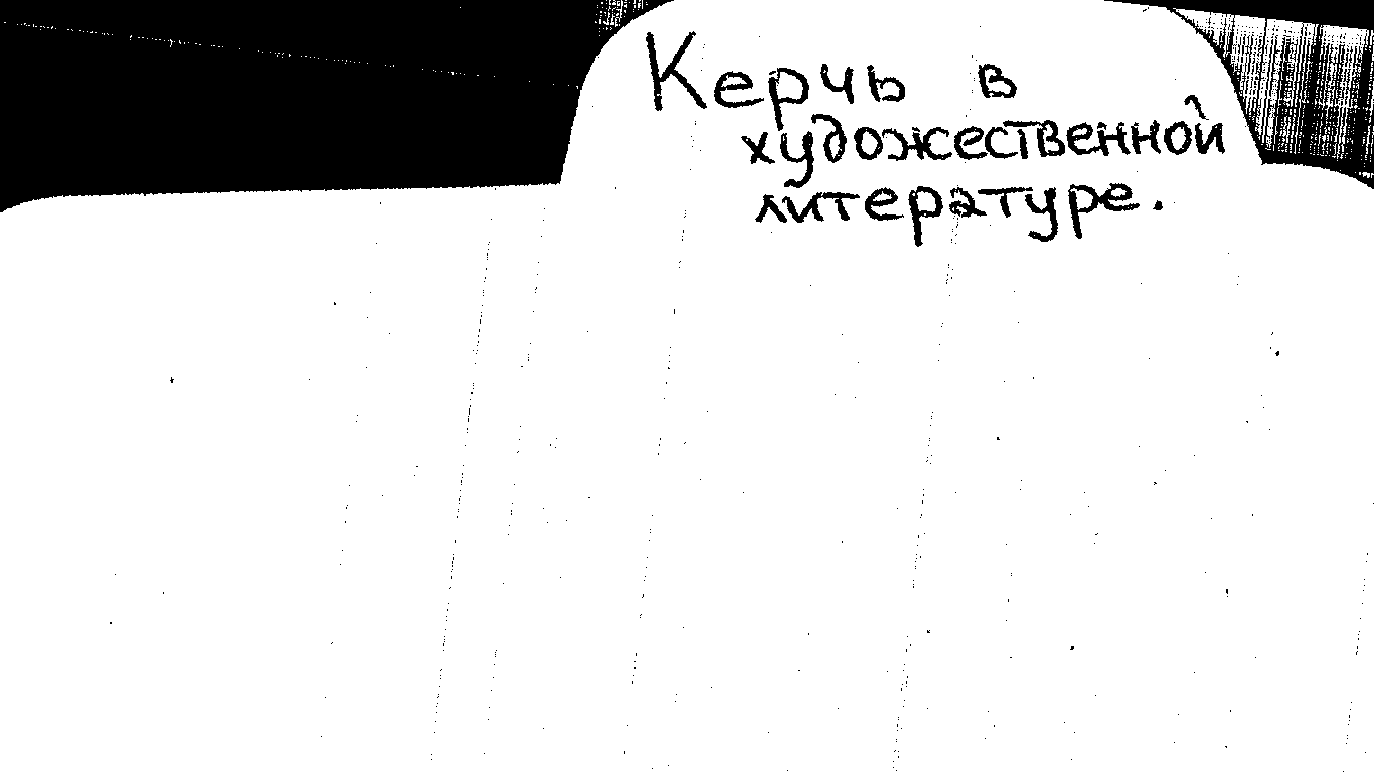 Керчь в
художественной
литературе.